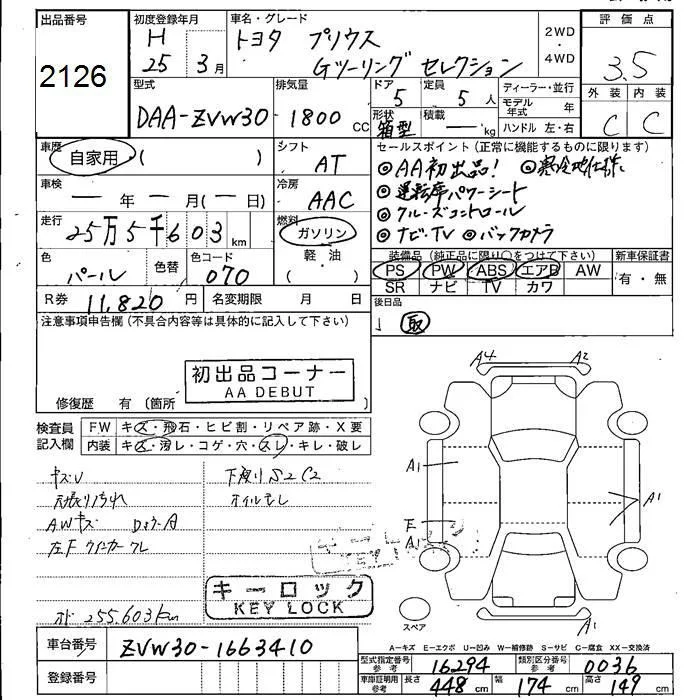 出品番号
2126
初度登録年月
H
25 3月
車名・グレード
トヨタ プリウス
Gツーリング セレクション
2WD
・
4WD
評価点
3.5
外装 内装
C C
型式
DAA-ZVW30
排気量
1800 CC
ドア
5
定員
5 人
形状
箱型
積載
— kg
ディーラー・並行
モデル年式 年
ハンドル 左・右
車歴
自家用 (
シフト
AT
車検
— 年 — 月(— 日)
冷房
AAC
走行
25万5千603 km
燃料
ガソリン
軽・油
( )
色
パール
色替
色コード
070
R券 11,820 円
名変期限 月 日
セールスポイント (正常に機能するものに限ります)
◎AA初出品! ◎寒冷地仕様
◎運転席パワーシート
◎クルーズコントロール
◎ナビ・TV ◎バックカメラ
装備品 (純正品に限り〇をつけて下さい)
新車保証書
PS PW ABS エアB AW
SR ナビ TV カワ
有・無
後日品
取
注意事項申告欄 (不具合内容等は具体的に記入して下さい)
初出品コーナー
AA DEBUT
修復歴 有 (箇所
検査員
記入欄
FW キズ・飛石・ヒビ割・リペア跡・X要
内装 キズ・汚レ・コゲ・穴・スレ・キレ・破レ
キズU
下廻りS2C2
AWキズ
左F ウインカー
キーロック
KEY LOCK
キーロック
KEY LOCK
255.603km
A4 A2
A1
A1
E
A1
A1
スペア
車台番号 ZVW30-1663410
登録番号
A-キズ E-エクボ U-凹み W-補修跡 S-サビ C-腐食 XX-交換済
型式指定番号
参考
16294
類別区分番号
参考
0036
車庫証明用
参考
長さ 448 cm 幅 174 cm 高さ 149 cm